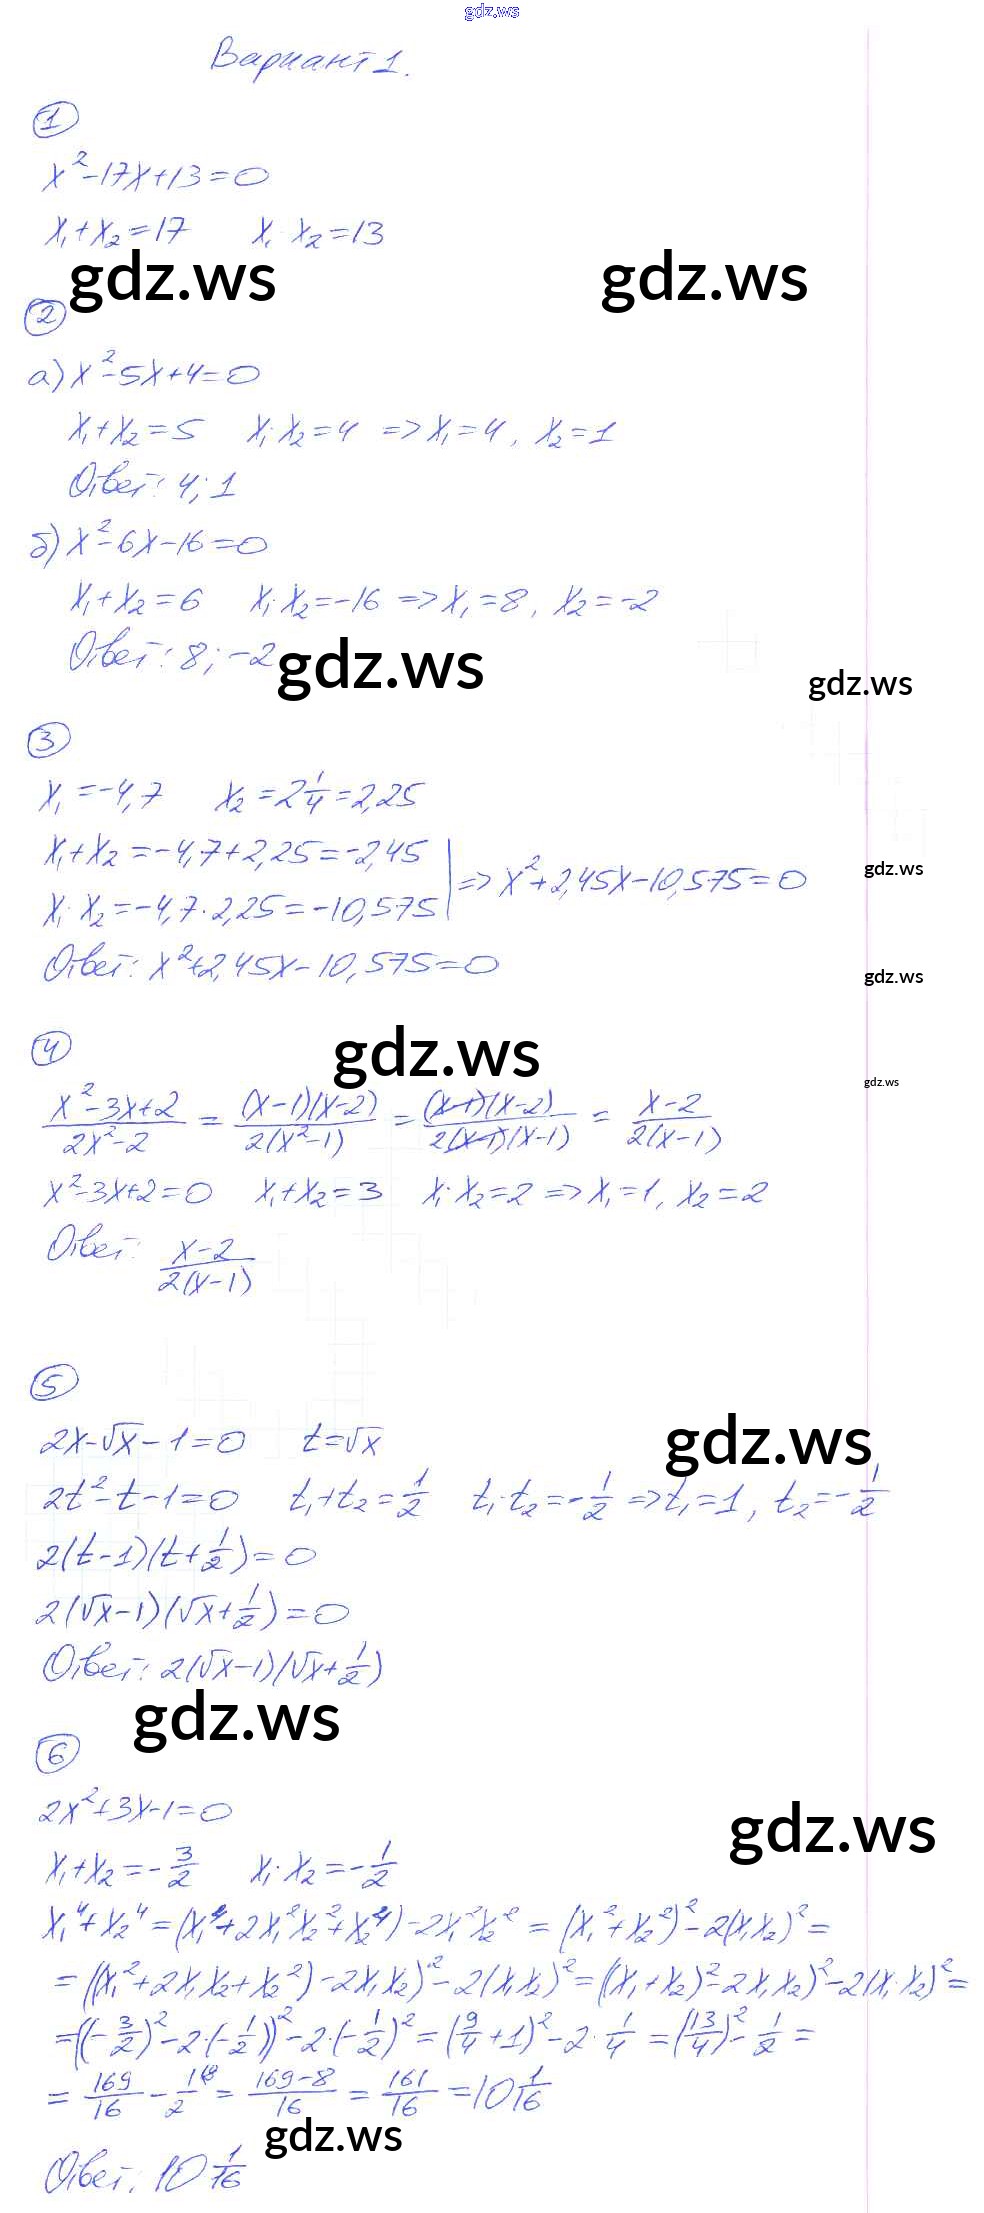 gdz.ws
Вариант 1.
1
x²-17x+13=0
x₁+x₂=17 x₁·x₂=13
gdz.ws gdz.ws
2
а) x²-5x+4=0
x₁+x₂=5 x₁·x₂=4 => x₁=4, x₂=1
Ответ: 4; 1
б) x²-6x-16=0
x₁+x₂=6 x₁·x₂=-16 => x₁=8, x₂=-2
Ответ: 8; -2
gdz.ws
gdz.ws
3
x₁=-4,7 x₂=2 1/4=2,25
x₁+x₂=-4,7+2,25=-2,45
x₁·x₂=-4,7·2,25=-10,575 | => x²+2,45x-10,575=0
gdz.ws
Ответ: x²+2,45x-10,575=0
gdz.ws
4
gdz.ws
gdz.ws
(x²-3x+2)/(2x²-2) = ((x-1)(x-2))/(2(x²-1)) = ((x-1)(x-2))/(2(x-1)(x-1)) = (x-2)/(2(x-1))
x²-3x+2=0 x₁+x₂=3 x₁·x₂=2 => x₁=1, x₂=2
Ответ: (x-2)/(2(x-1))
5
gdz.ws
2x-√x-1=0 t=√x
2t²-t-1=0 t₁+t₂=1/2 t₁·t₂=-1/2 => t₁=1, t₂=-1/2
2(t-1)(t+1/2)=0
2(√x-1)(√x+1/2)=0
Ответ: 2(√x-1)(√x+1/2)
gdz.ws
6
2x²+3x-1=0
gdz.ws
x₁+x₂=-3/2 x₁·x₂=-1/2
x₁⁴+x₂⁴=(x₁⁴+2x₁²x₂²+x₂⁴)-2x₁²x₂²=(x₁²+x₂²)²-2(x₁x₂)²=
=((x₁²+2x₁x₂+x₂²)-2x₁x₂)²-2(x₁x₂)²=((x₁+x₂)²-2x₁x₂)²-2(x₁·x₂)²=
=((-3/2)²-2·(-1/2))²-2·(-1/2)²=(9/4+1)²-2·1/4=(13/4)²-1/2=
=169/16-1/2=(169-8)/16=161/16=10 1/16
gdz.ws
Ответ: 10 1/16